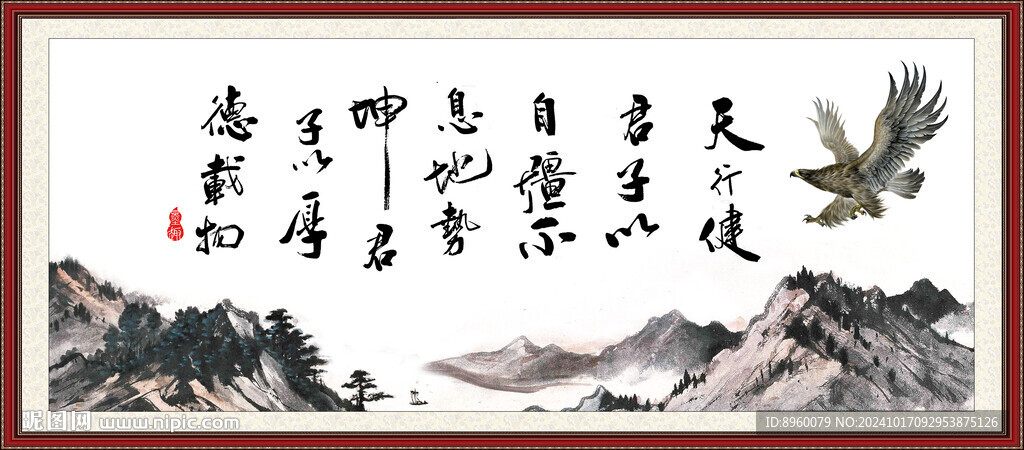 天行健
君子以
自彊不
息地勢
坤君
子以厚
德載物
昵图网 www.nipic.com
ID:8960079 NO:20241017092953875126